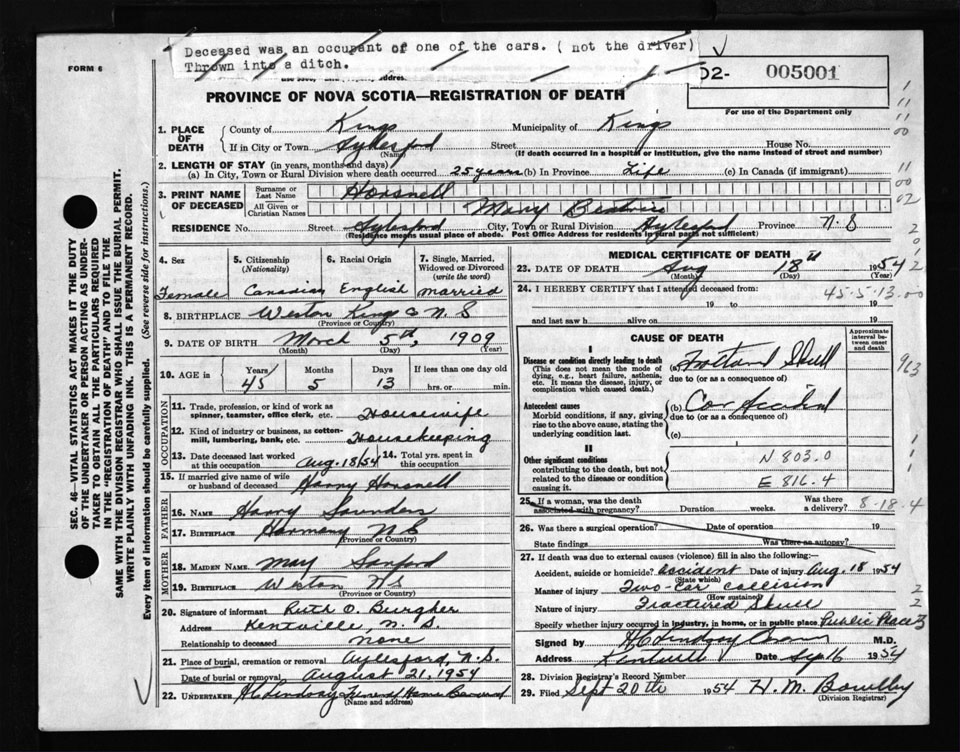 Deceased was an occupant of one of the cars. ( not the driver)
Thrown into a ditch.
FORM 6
address
02- 005001
For use of the Department only
PROVINCE OF NOVA SCOTIA—REGISTRATION OF DEATH
1. PLACE OF DEATH
County of Kings Municipality of Kings
If in City or Town Aylesford Street House No.
(Name) (If death occurred in a hospital or institution, give the name instead of street and number)
2. LENGTH OF STAY (in years, months and days)
(a) In City, Town or Rural Division where death occurred 25 years (b) In Province Life (c) In Canada (if immigrant)
3. PRINT NAME OF DECEASED
Surname or Last Name Horsnell
All Given or Christian Names Mary Beatrice
RESIDENCE No. Street Aylesford City, Town or Rural Division Aylesford Province N.S
(Residence means usual place of abode. Post Office Address for residents in rural parts not sufficient)
SEC. 46—VITAL STATISTICS ACT MAKES IT THE DUTY
OF THE UNDERTAKER OR PERSON ACTING AS UNDER-
TAKER TO OBTAIN ALL THE PARTICULARS REQUIRED
IN THE "REGISTRATION OF DEATH" AND TO FILE THE
SAME WITH THE DIVISION REGISTRAR WHO SHALL ISSUE THE BURIAL PERMIT.
WRITE PLAINLY WITH UNFADING INK. THIS IS A PERMANENT RECORD.
Every item of information should be carefully supplied. (See reverse side for instructions.)
4. Sex Female
5. Citizenship (Nationality) Canadian
6. Racial Origin English
7. Single, Married, Widowed or Divorced (write the word) married
8. BIRTHPLACE Weston Kings Co N.S
(Province or Country)
9. DATE OF BIRTH March 5th, 1909
(Month) (Day) (Year)
10. AGE in Years 45 Months 5 Days 13 If less than one day hrs. or min.
OCCUPATION
11. Trade, profession, or kind of work as spinner, teamster, office clerk, etc. Housewife
12. Kind of industry or business, as cotton-mill, lumbering, bank, etc. Housekeeping
13. Date deceased last worked at this occupation Aug. 18/54 14. Total yrs. spent in this occupation
15. If married give name of wife or husband of deceased Harry Horsnell
FATHER
16. NAME Harry Saunders
17. BIRTHPLACE Harmony N S
(Province or Country)
MOTHER
18. MAIDEN NAME May Sanford
19. BIRTHPLACE Weston N.S
(Province or Country)
20. Signature of informant Ruth O. Burgher
Address Kentville, N. S.
Relationship to deceased None
21. Place of burial, cremation or removal Aylesford, N.S.
Date of burial or removal August 21, 1954
22. UNDERTAKER H C Lindsay Funeral Home
(Name and address)
MEDICAL CERTIFICATE OF DEATH
23. DATE OF DEATH Aug 18th 1954
(Month) (Day) (Year)
24. I HEREBY CERTIFY that I attended deceased from: 45-5-13-00
19 to 19
and last saw h alive on 19
CAUSE OF DEATH
Approximate interval between onset and death
I
Disease or condition directly leading to death
(This does not mean the mode of dying, e.g., heart failure, asthenia, etc. It means the disease, injury, or complication which caused death.)
(a) Fractured Skull
due to (or as a consequence of)
Antecedent causes
Morbid conditions, if any, giving rise to the above cause, stating the underlying condition last.
(b) Car Accident
due to (or as a consequence of)
(c)
II
Other significant conditions contributing to the death, but not related to the disease or condition causing it.
N 803.0
E 816.4
963
25. If a woman, was the death associated with pregnancy? Duration weeks. Was there a delivery? 8-18-4
26. Was there a surgical operation? Date of operation 19
State findings Was there an autopsy?
27. If death was due to external causes (violence) fill in also the following:
Accident, suicide or homicide? accident Date of injury Aug. 18 1954
(State which)
Manner of injury Two-car collision
(How sustained)
Nature of injury Fractured Skull
Specify whether injury occurred in industry, in home, or in public place. Public Place
Signed by M.D.
Address Kentville Date Sep 16 1954
28. Division Registrar's Record Number
29. Filed Sept 20th 1954 H. M. Bowlby
(Division Registrar)